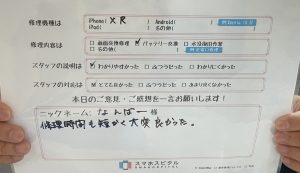 修理機種は iPhone( XR ) Android( )
iPad( ) その他( )
修理内容は □画面交換修理 ☑バッテリー交換 □水没復旧作業
□その他( )
スタッフの説明は ☑わかりやすかった □ふつうだった □わかりにくかった
スタッフの対応は ☑とても良かった □ふつうだった □悪かった
本日のご意見・ご感想を一言お願いします!
ニックネーム:なんばー 様
修理時間も短かく大変良かった。
スマホスピタル
SMAHOSPITAL